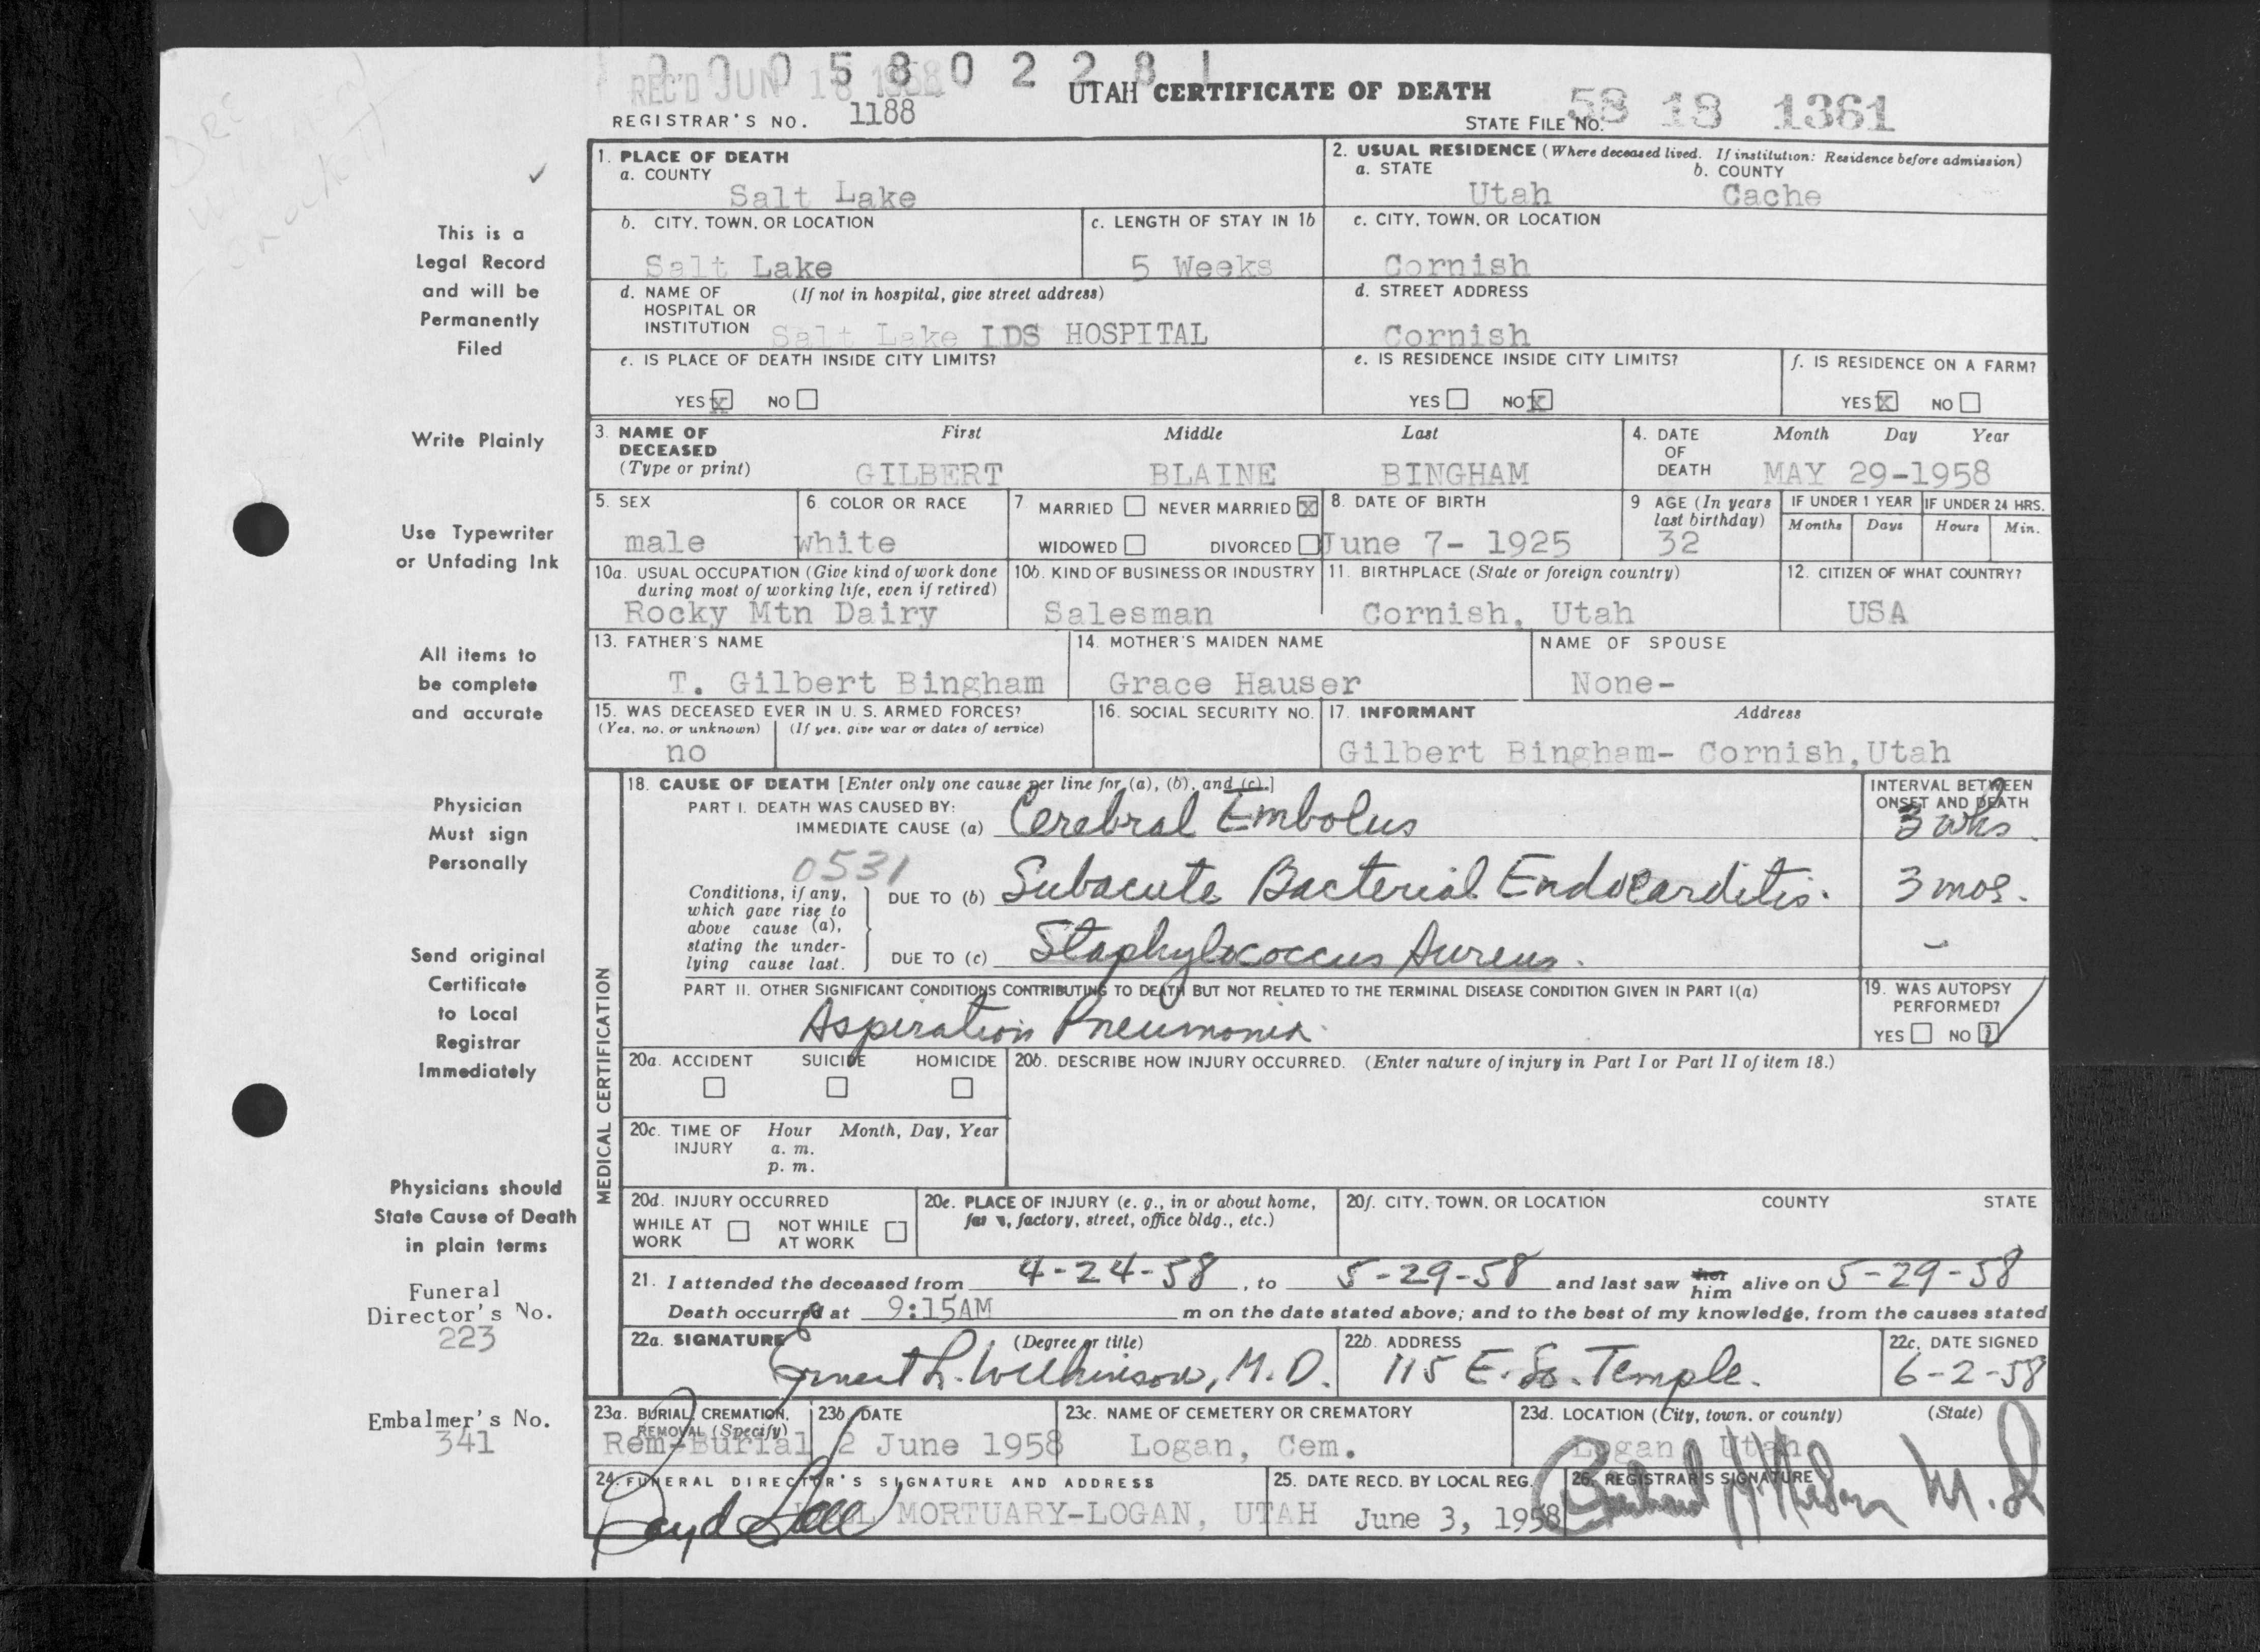 0 0 0 5 8 0 2 2 8 1
REC'D JUN 18 1958
UTAH CERTIFICATE OF DEATH
REGISTRAR'S NO. 1188
STATE FILE NO. 58 18 1361
1. PLACE OF DEATH
a. COUNTY
Salt Lake
2. USUAL RESIDENCE (Where deceased lived. If institution: Residence before admission)
a. STATE b. COUNTY
Utah Cache
b. CITY, TOWN, OR LOCATION
Salt Lake
c. LENGTH OF STAY IN 1b
5 Weeks
c. CITY, TOWN, OR LOCATION
Cornish
d. NAME OF (If not in hospital, give street address)
HOSPITAL OR
INSTITUTION Salt Lake LDS HOSPITAL
d. STREET ADDRESS
Cornish
e. IS PLACE OF DEATH INSIDE CITY LIMITS?
YES X NO
e. IS RESIDENCE INSIDE CITY LIMITS?
YES NO X
f. IS RESIDENCE ON A FARM?
YES X NO
3. NAME OF DECEASED (Type or print)
First Middle Last
GILBERT BLAINE BINGHAM
4. DATE OF DEATH
Month Day Year
MAY 29-1958
5. SEX
male
6 COLOR OR RACE
white
7 MARRIED NEVER MARRIED X
WIDOWED DIVORCED
8. DATE OF BIRTH
June 7- 1925
9 AGE (In years last birthday)
32
IF UNDER 1 YEAR IF UNDER 24 HRS.
Months Days Hours Min.
10a. USUAL OCCUPATION (Give kind of work done
during most of working life, even if retired)
Rocky Mtn Dairy
10b. KIND OF BUSINESS OR INDUSTRY
Salesman
11. BIRTHPLACE (State or foreign country)
Cornish, Utah
12. CITIZEN OF WHAT COUNTRY?
USA
13. FATHER'S NAME
T. Gilbert Bingham
14. MOTHER'S MAIDEN NAME
Grace Hauser
NAME OF SPOUSE
None-
15. WAS DECEASED EVER IN U. S. ARMED FORCES?
(Yes, no, or unknown) (If yes, give war or dates of service)
no
16. SOCIAL SECURITY NO.
17. INFORMANT Address
Gilbert Bingham- Cornish, Utah
MEDICAL CERTIFICATION
18. CAUSE OF DEATH [Enter only one cause per line for (a), (b), and (c).]
INTERVAL BETWEEN
ONSET AND DEATH
PART I. DEATH WAS CAUSED BY:
IMMEDIATE CAUSE (a) Cerebral Embolus 3 wks
0531
Conditions, if any,
which gave rise to
above cause (a),
stating the under-
lying cause last.
DUE TO (b) Subacute Bacterial Endocarditis. 3 mos.
DUE TO (c) Staphylococcus Aureus. -
PART II. OTHER SIGNIFICANT CONDITIONS CONTRIBUTING TO DEATH BUT NOT RELATED TO THE TERMINAL DISEASE CONDITION GIVEN IN PART I(a)
Aspiration Pneumonia
19. WAS AUTOPSY
PERFORMED?
YES NO
20a. ACCIDENT SUICIDE HOMICIDE
20b. DESCRIBE HOW INJURY OCCURRED. (Enter nature of injury in Part I or Part II of item 18.)
20c. TIME OF INJURY
Hour Month, Day, Year
a. m.
p. m.
20d. INJURY OCCURRED
WHILE AT WORK NOT WHILE AT WORK
20e. PLACE OF INJURY (e. g., in or about home,
farm, factory, street, office bldg., etc.)
20f. CITY, TOWN, OR LOCATION COUNTY STATE
21. I attended the deceased from 4-24-58, to 5-29-58 and last saw her him alive on 5-29-58
Death occurred at 9:15AM m on the date stated above; and to the best of my knowledge, from the causes stated
22a. SIGNATURE (Degree or title)
Ernest L. Wilkinson, M.D.
22b. ADDRESS
115 E. So. Temple.
22c. DATE SIGNED
6-2-58
23a. BURIAL, CREMATION,
REMOVAL (Specify)
Rem-Burial
23b. DATE
2 June 1958
23c. NAME OF CEMETERY OR CREMATORY
Logan, Cem.
23d. LOCATION (City, town, or county) (State)
Logan, Utah
24. FUNERAL DIRECTOR'S SIGNATURE AND ADDRESS
HALL MORTUARY-LOGAN, UTAH
25. DATE RECD. BY LOCAL REG.
June 3, 1958
26. REGISTRAR'S SIGNATURE
M.D
This is a
Legal Record
and will be
Permanently
Filed
Write Plainly
Use Typewriter
or Unfading Ink
All items to
be complete
and accurate
Physician
Must sign
Personally
Send original
Certificate
to Local
Registrar
Immediately
Physicians should
State Cause of Death
in plain terms
Funeral
Director's No.
223
Embalmer's No.
341